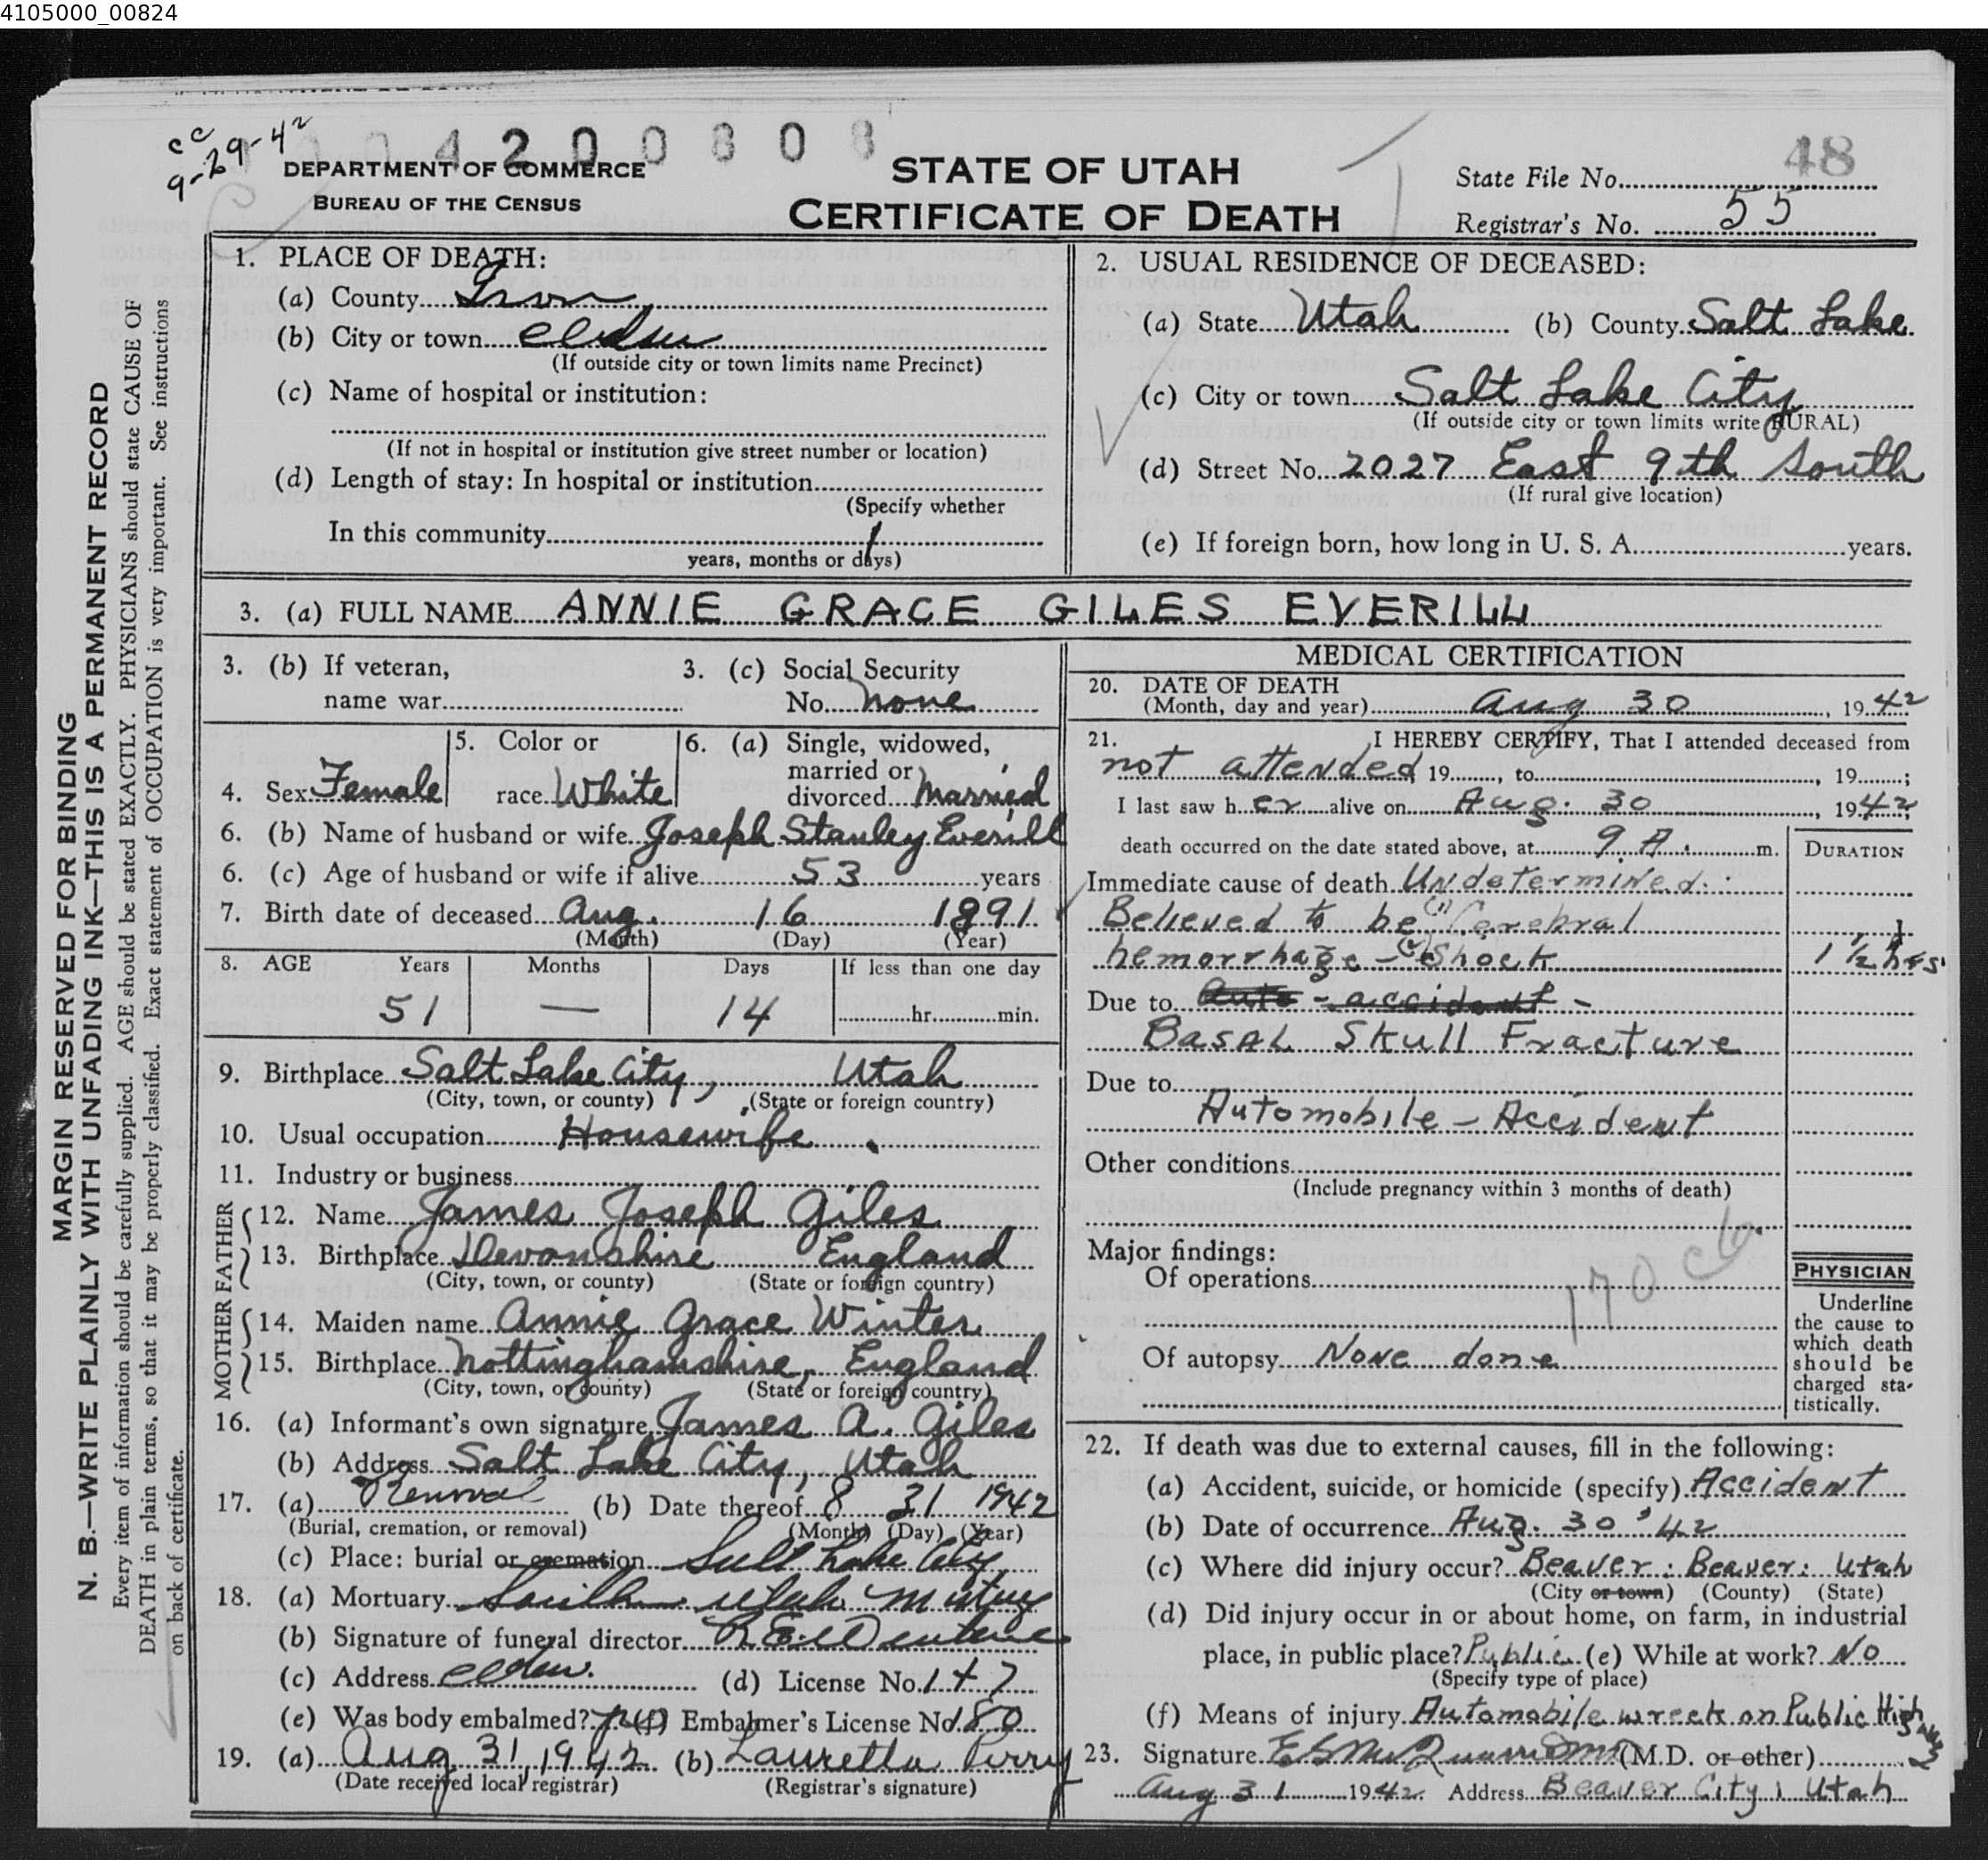 4105000_00824
cc
9-29-42
DEPARTMENT OF COMMERCE
BUREAU OF THE CENSUS
STATE OF UTAH
CERTIFICATE OF DEATH
48
State File No.
Registrar's No. 55
MARGIN RESERVED FOR BINDING
N. B.—WRITE PLAINLY WITH UNFADING INK—THIS IS A PERMANENT RECORD
Every item of information should be carefully supplied. AGE should be stated EXACTLY. PHYSICIANS should state CAUSE OF
DEATH in plain terms, so that it may be properly classified. Exact statement of OCCUPATION is very important. See instructions
on back of certificate.
1. PLACE OF DEATH:
(a) County Iron
(b) City or town
(If outside city or town limits name Precinct)
(c) Name of hospital or institution:
(If not in hospital or institution give street number or location)
(d) Length of stay: In hospital or institution
(Specify whether
In this community 1
years, months or days)
2. USUAL RESIDENCE OF DECEASED:
(a) State Utah (b) County Salt Lake
(c) City or town Salt Lake City
(If outside city or town limits write RURAL)
(d) Street No. 2027 East 9th South
(If rural give location)
(e) If foreign born, how long in U. S. A. years.
3. (a) FULL NAME ANNIE GRACE GILES EVERILL
3. (b) If veteran,
name war
3. (c) Social Security
No. none
4. Sex Female
5. Color or
race White
6. (a) Single, widowed,
married or
divorced Married
6. (b) Name of husband or wife Joseph Stanley Everill
6. (c) Age of husband or wife if alive 53 years
7. Birth date of deceased Aug. 16 1891
(Month) (Day) (Year)
8. AGE Years Months Days If less than one day
51 — 14 hr. min.
9. Birthplace Salt Lake City, Utah
(City, town, or county) (State or foreign country)
10. Usual occupation Housewife.
11. Industry or business
FATHER
12. Name James Joseph Giles
13. Birthplace Devonshire England
(City, town, or county) (State or foreign country)
MOTHER
14. Maiden name Annie Grace Winter
15. Birthplace Nottinghamshire, England
(City, town, or county) (State or foreign country)
16. (a) Informant's own signature James A. Giles
(b) Address Salt Lake City, Utah
17. (a) Removal (b) Date thereof 8 31 1942
(Burial, cremation, or removal) (Month) (Day) (Year)
(c) Place: burial or cremation Salt Lake City
18. (a) Mortuary Southern Utah Mortuary
(b) Signature of funeral director
(c) Address (d) License No. 147
(e) Was body embalmed? yes Embalmer's License No. 180
19. (a) Aug 31, 1942 (b) Lauretta Perry
(Date received local registrar) (Registrar's signature)
MEDICAL CERTIFICATION
20. DATE OF DEATH
(Month, day and year) Aug 30, 1942
21. I HEREBY CERTIFY, That I attended deceased from
not attended 19, to, 19;
I last saw her alive on Aug. 30, 1942;
death occurred on the date stated above, at 9 A.m.
DURATION
Immediate cause of death Undetermined.
Believed to be (1) Cerebral
hemorrhage - (2) Shock 1 1/2 hrs.
Due to Auto - accident -
Basal Skull Fracture
Due to
Automobile - Accident
Other conditions
(Include pregnancy within 3 months of death)
Major findings:
Of operations
170 cb.
Of autopsy None done
PHYSICIAN
Underline
the cause to
which death
should be
charged sta-
tistically.
22. If death was due to external causes, fill in the following:
(a) Accident, suicide, or homicide (specify) Accident
(b) Date of occurrence Aug. 30 '42
(c) Where did injury occur? Beaver: Beaver: Utah
(City or town) (County) (State)
(d) Did injury occur in or about home, on farm, in industrial
place, in public place? Public (e) While at work? No
(Specify type of place)
(f) Means of injury Automobile wreck on Public Highway
23. Signature (M.D. or other)
Aug 31 1942 Address Beaver City, Utah